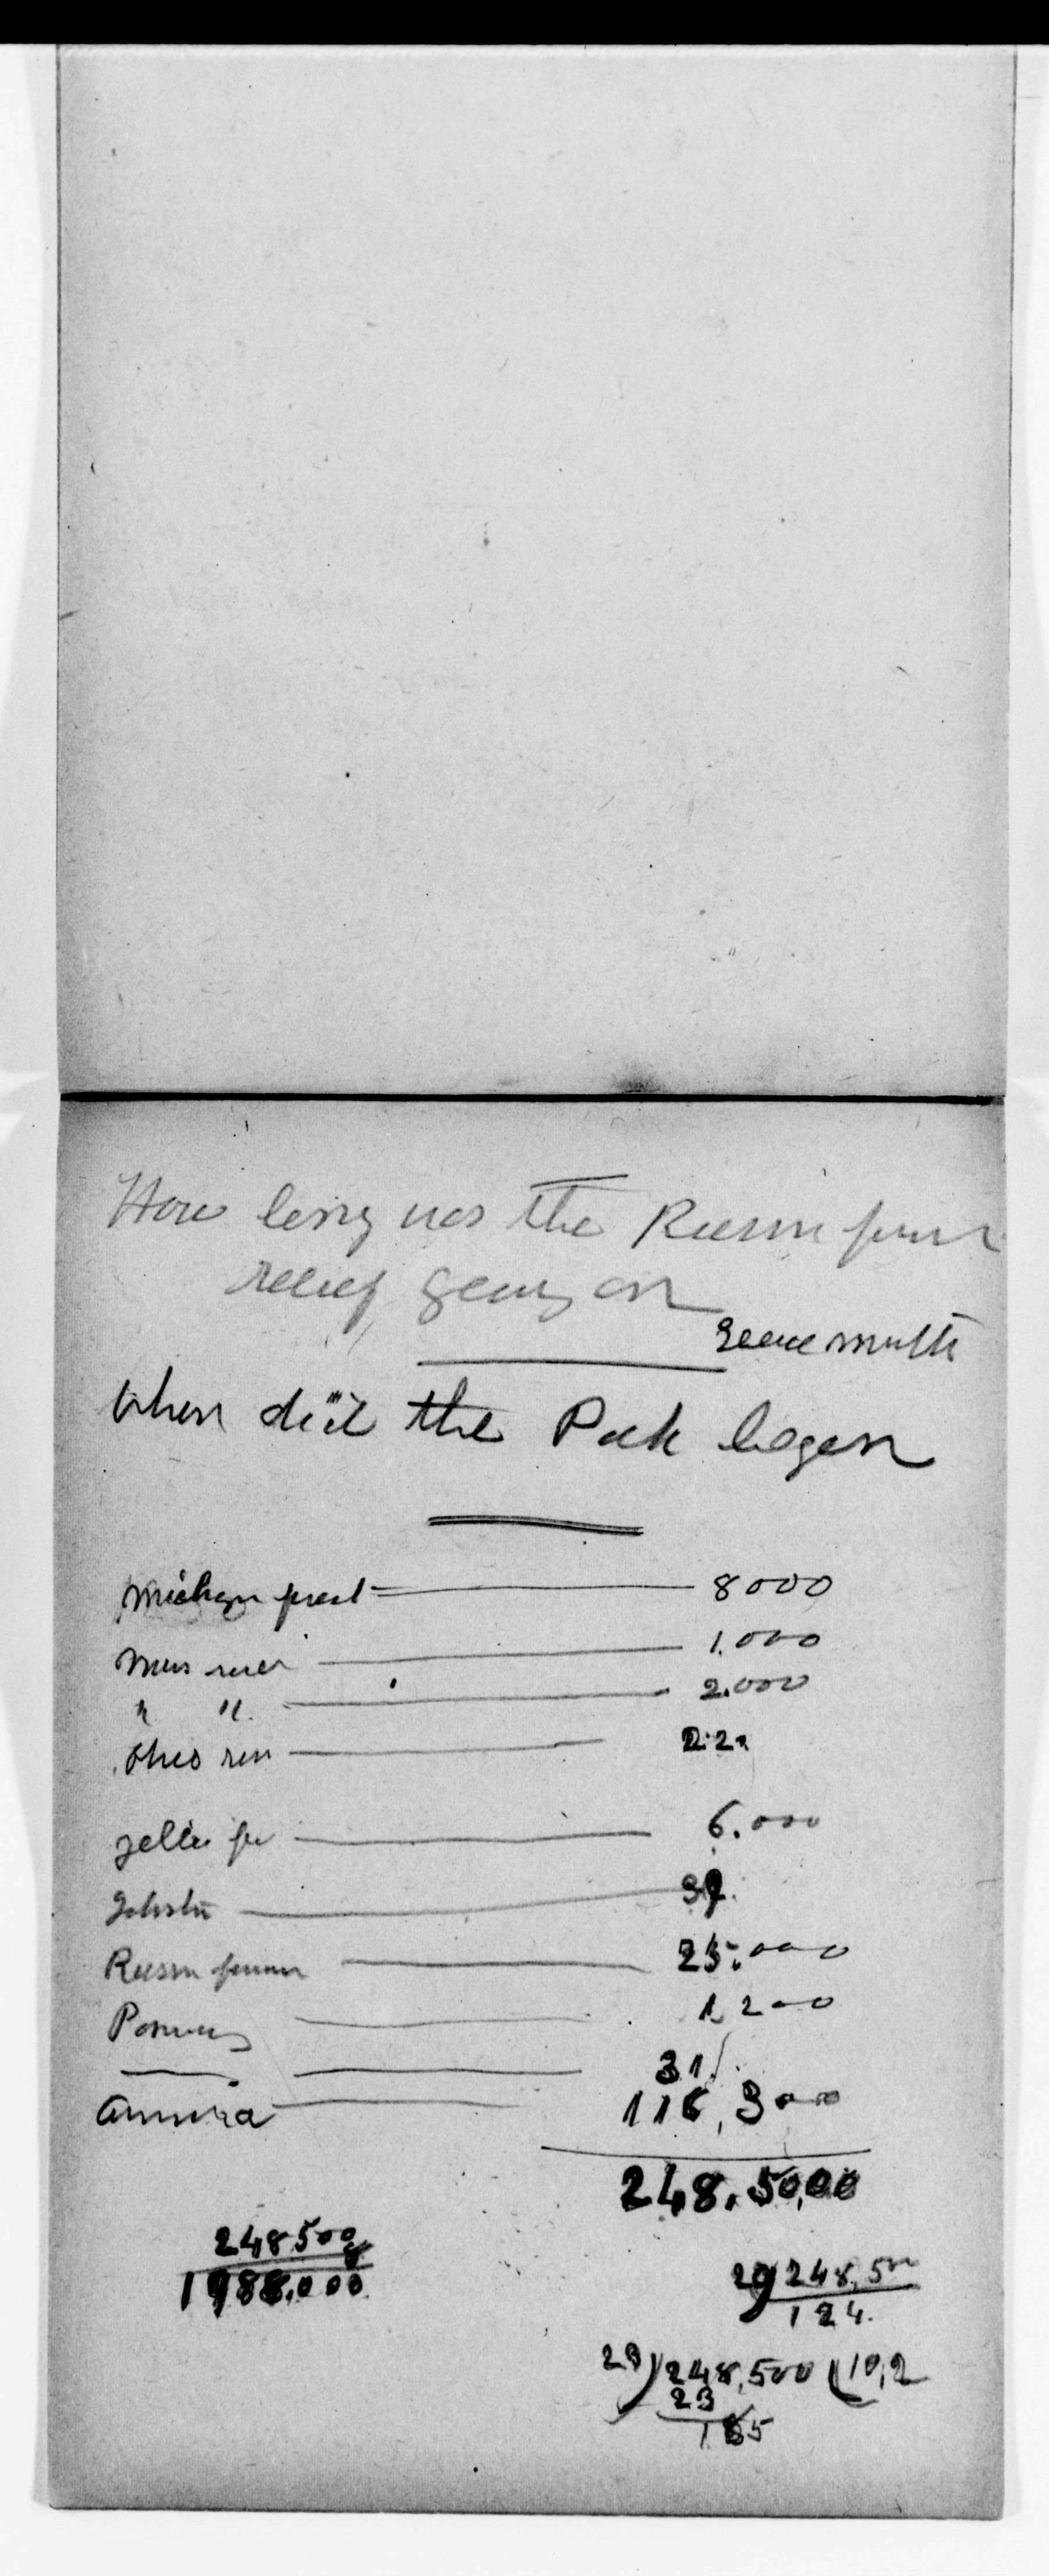 How long was the Russian famine
relief going on
Seven months
When did the Park began
Michigan forest 8000
Miss river 1.000
" " 2.000
Ohio river 22.
6.000
Russian famine 25.000
1200
31
Armenia 116,300
248.5000
248500
8
1988.000
20)248.500
124.
23)248,500(10,2
23
185